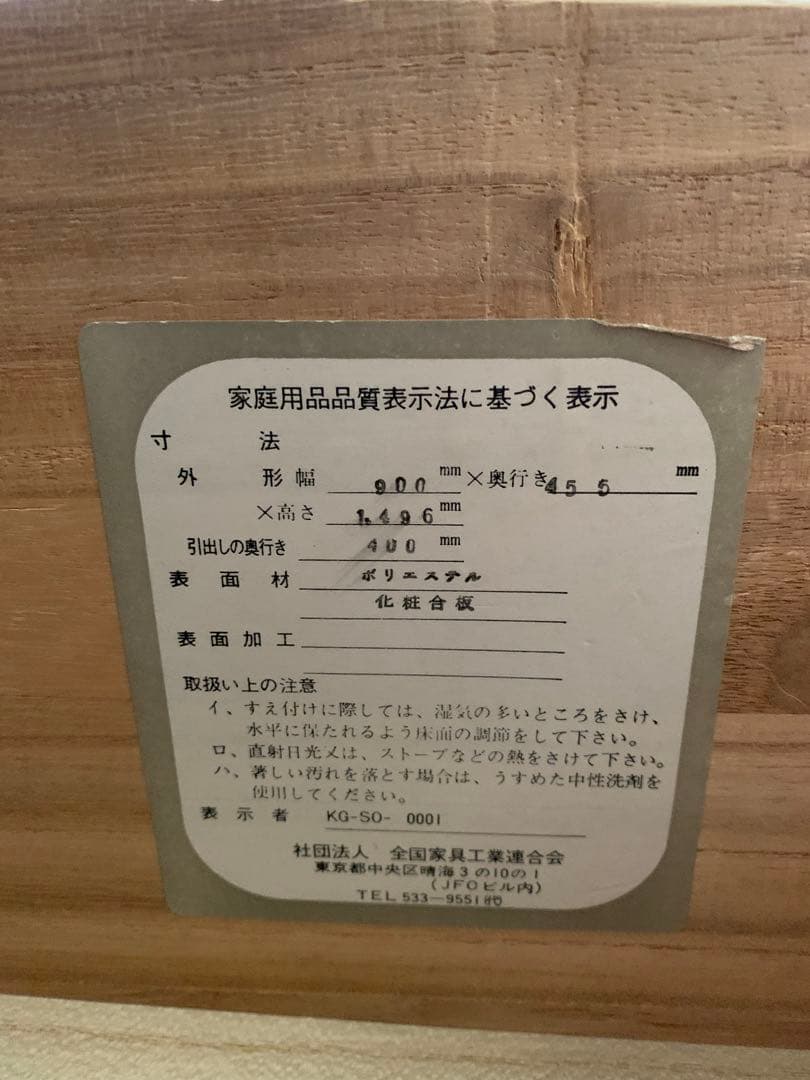 家庭用品品質表示法に基づく表示
寸 法
外 形 幅 900 mm × 奥行き 455 mm
×高さ 1,496 mm
引出しの奥行き 400 mm
表 面 材 ポリエステル
化粧合板
表 面 加 工
取扱い上の注意
イ、すえ付けに際しては、湿気の多いところをさけ、
水平に保たれるよう床面の調節をして下さい。
ロ、直射日光又は、ストーブなどの熱をさけて下さい。
ハ、著しい汚れを落とす場合は、うすめた中性洗剤を
使用してください。
表 示 者 KG-SO- 0001
社団法人 全国家具工業連合会
東京都中央区晴海3の10の1
(JFCビル内)
TEL 533-9551代